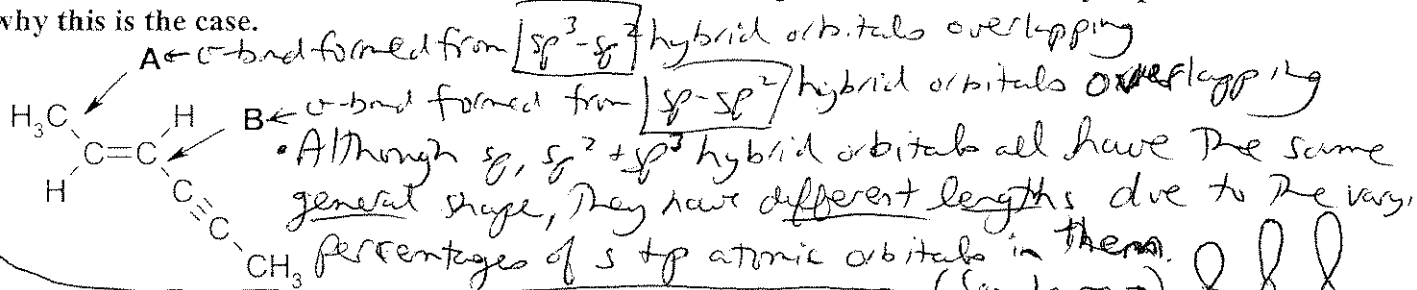 why this is the case.
A ← σ-bond formed from sp³-sp² hybrid orbitals overlapping
H₃C H B ← σ-bond formed from sp-sp² hybrid orbitals overlapping
C=C • Although sp, sp² + sp³ hybrid orbitals all have the same
H C general shape, they have different lengths due to the vary
≡C
CH₃ percentages of s + p atomic orbitals in them.